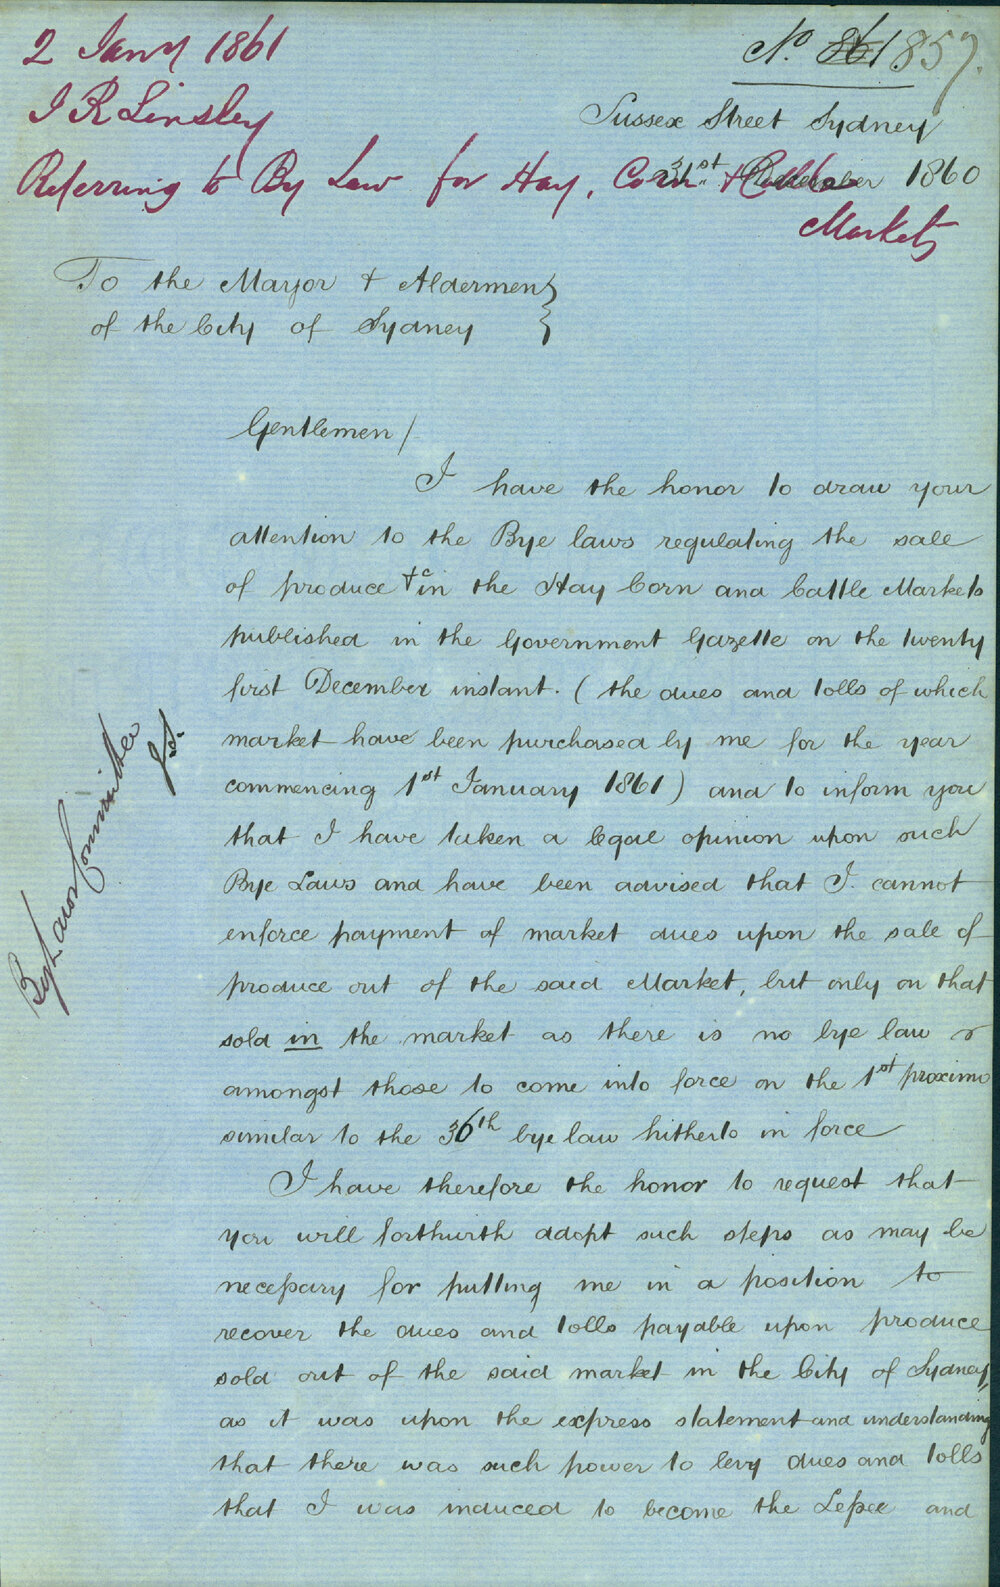 2 Jany 1861
J R Linsley
Referring to By Law for Hay, Corn & Cattle
Markets
No. 861 857.
Sussex Street Sydney
31st December 1860
To the Mayor & Aldermen
of the City of Sydney
Gentlemen /
I have the honor to draw your
attention to the Bye laws regulating the sale
of produce &c in the Hay Corn and Cattle Markets
published in the Government Gazette on the twenty
first December instant. (the dues and tolls of which
market have been purchased by me for the year
commencing 1st January 1861) and to inform you
that I have taken a legal opinion upon such
Bye Laws and have been advised that I cannot
enforce payment of market dues upon the sale of
produce out of the said Market, but only on that
sold in the market as there is no bye law
amongst those to come into force on the 1st proximo
similar to the 36th bye law hitherto in force
I have therefore the honor to request that
you will forthwith adopt such steps as may be
necessary for putting me in a position to
recover the dues and tolls payable upon produce
sold out of the said market in the City of Sydney,
as it was upon the express statement and understanding
that there was such power to levy dues and tolls
that I was induced to become the Lessee and
Bye Laws Committee